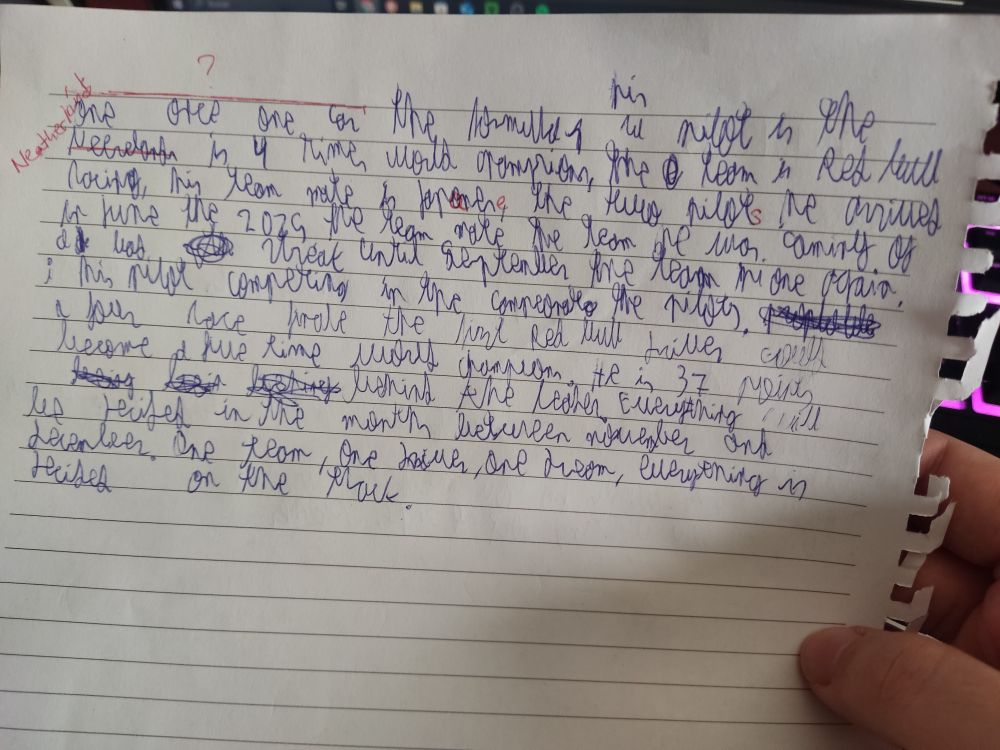 ?
his
Neatherland
One once one car the formula 1 is pilot is the
is 4 time world champion, the team is Red bull
racing, his team mate is the two pilots he arrived
in june the 2025 the team mate the team he was coming. Of
until September the team in one again.
this pilot competing in the the pilots.
a four race the first Red bull driver could
become a five time world champion. He is 37 points
behind the leader. Everything will
be decided in the month between november and
december. One team, One driver, one dream, everything is
decided on the track.